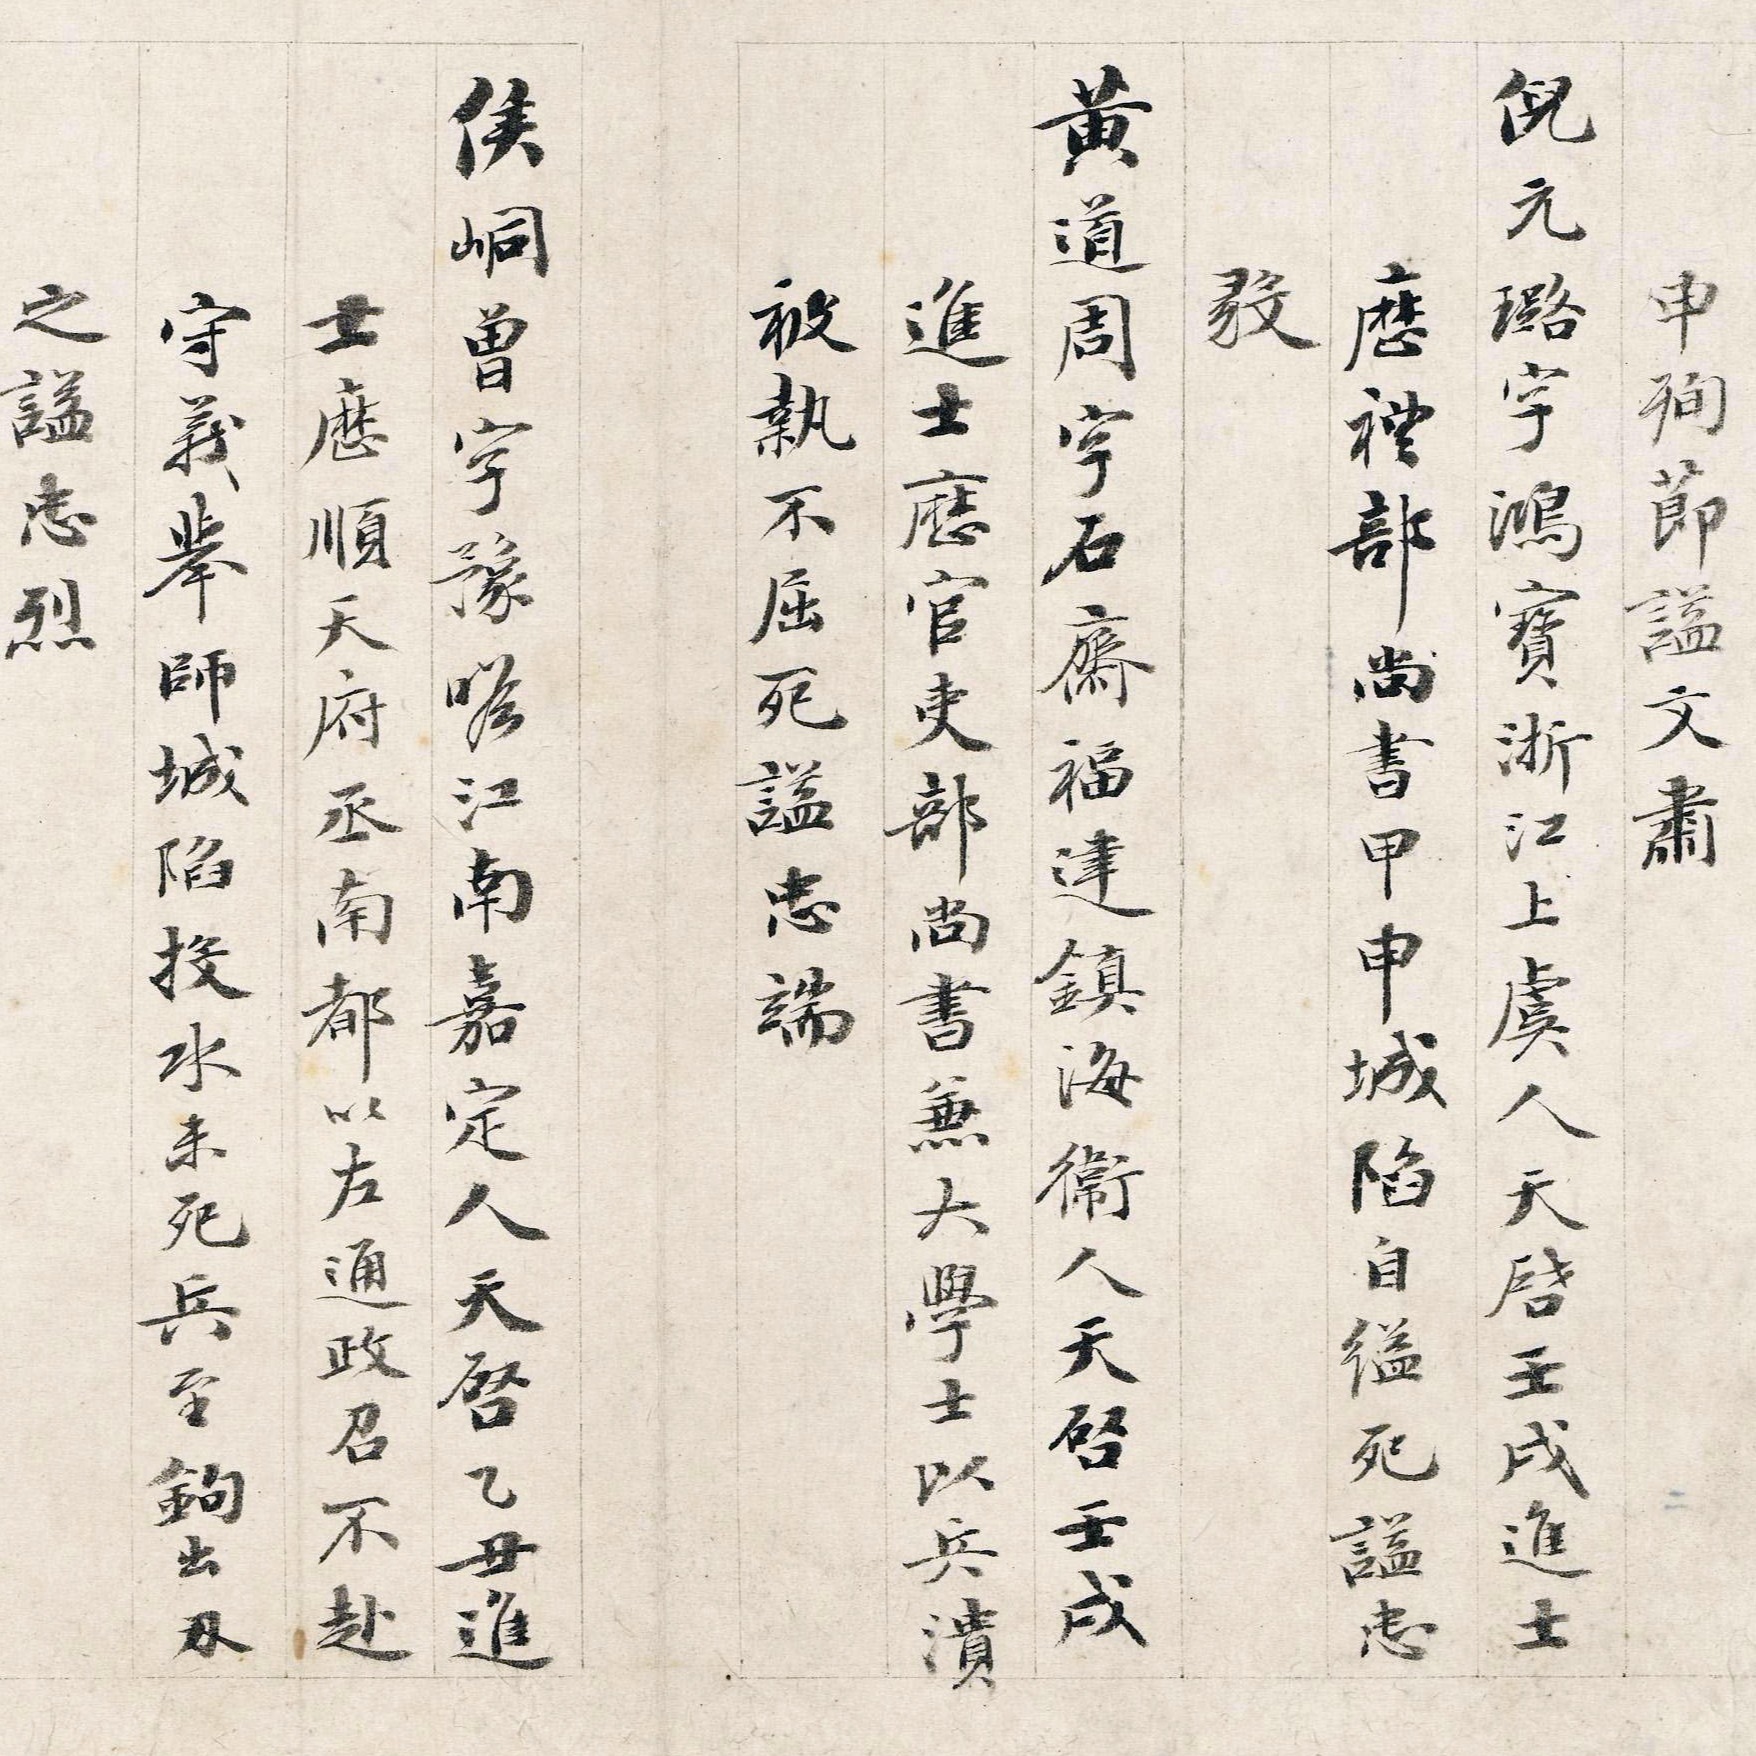 申殉節謚文肅
倪元璐字鴻寳浙江上虞人天啓壬戌進士
歷禮部尚書甲申城陷自縊死謚忠
毅
黄道周字石齋福建鎮海衞人天啓壬戌
進士歷官吏部尚書兼大學士以兵潰
被執不屈死謚忠端
侯峒曾字豫瞻江南嘉定人天啓乙丑進
士歷順天府丞南都以左通政召不赴
守義舉師城陷投水未死兵至鉤出刃
之謚忠烈